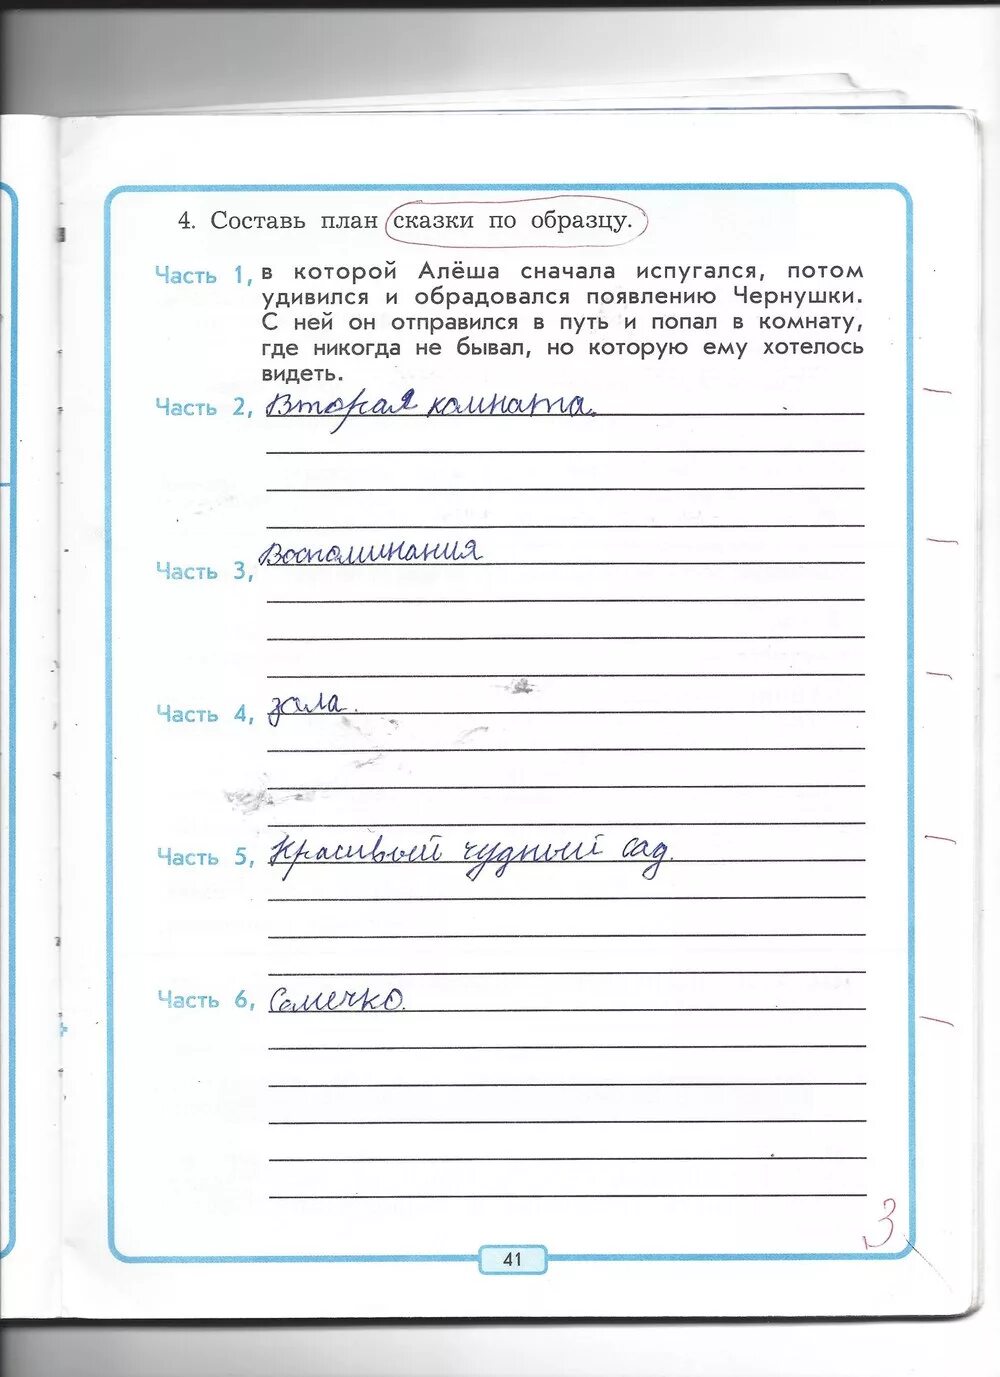 4. Составь план сказки по образцу.
Часть 1, в которой Алёша сначала испугался, потом
удивился и обрадовался появлению Чернушки.
С ней он отправился в путь и попал в комнату,
где никогда не бывал, но которую ему хотелось
видеть.
Часть 2, Вторая комната.
Часть 3, Воспоминания
Часть 4, зала.
Часть 5, Красивый чудный сад.
Часть 6, Семечко.
3
41